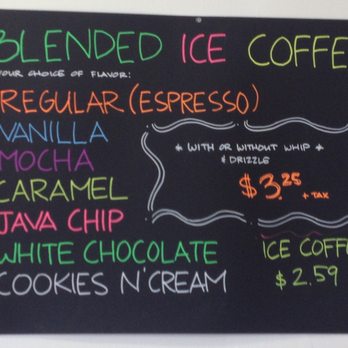 BLENDED ICE COFFE
YOUR CHOICE OF FLAVOR:
REGULAR (ESPRESSO)
VANILLA
MOCHA
CARAMEL
JAVA CHIP
WHITE CHOCOLATE
COOKIES N'CREAM
* WITH OR WITHOUT WHIP *
& DRIZZLE
$3.25 + TAX
ICE COFF
$2.59